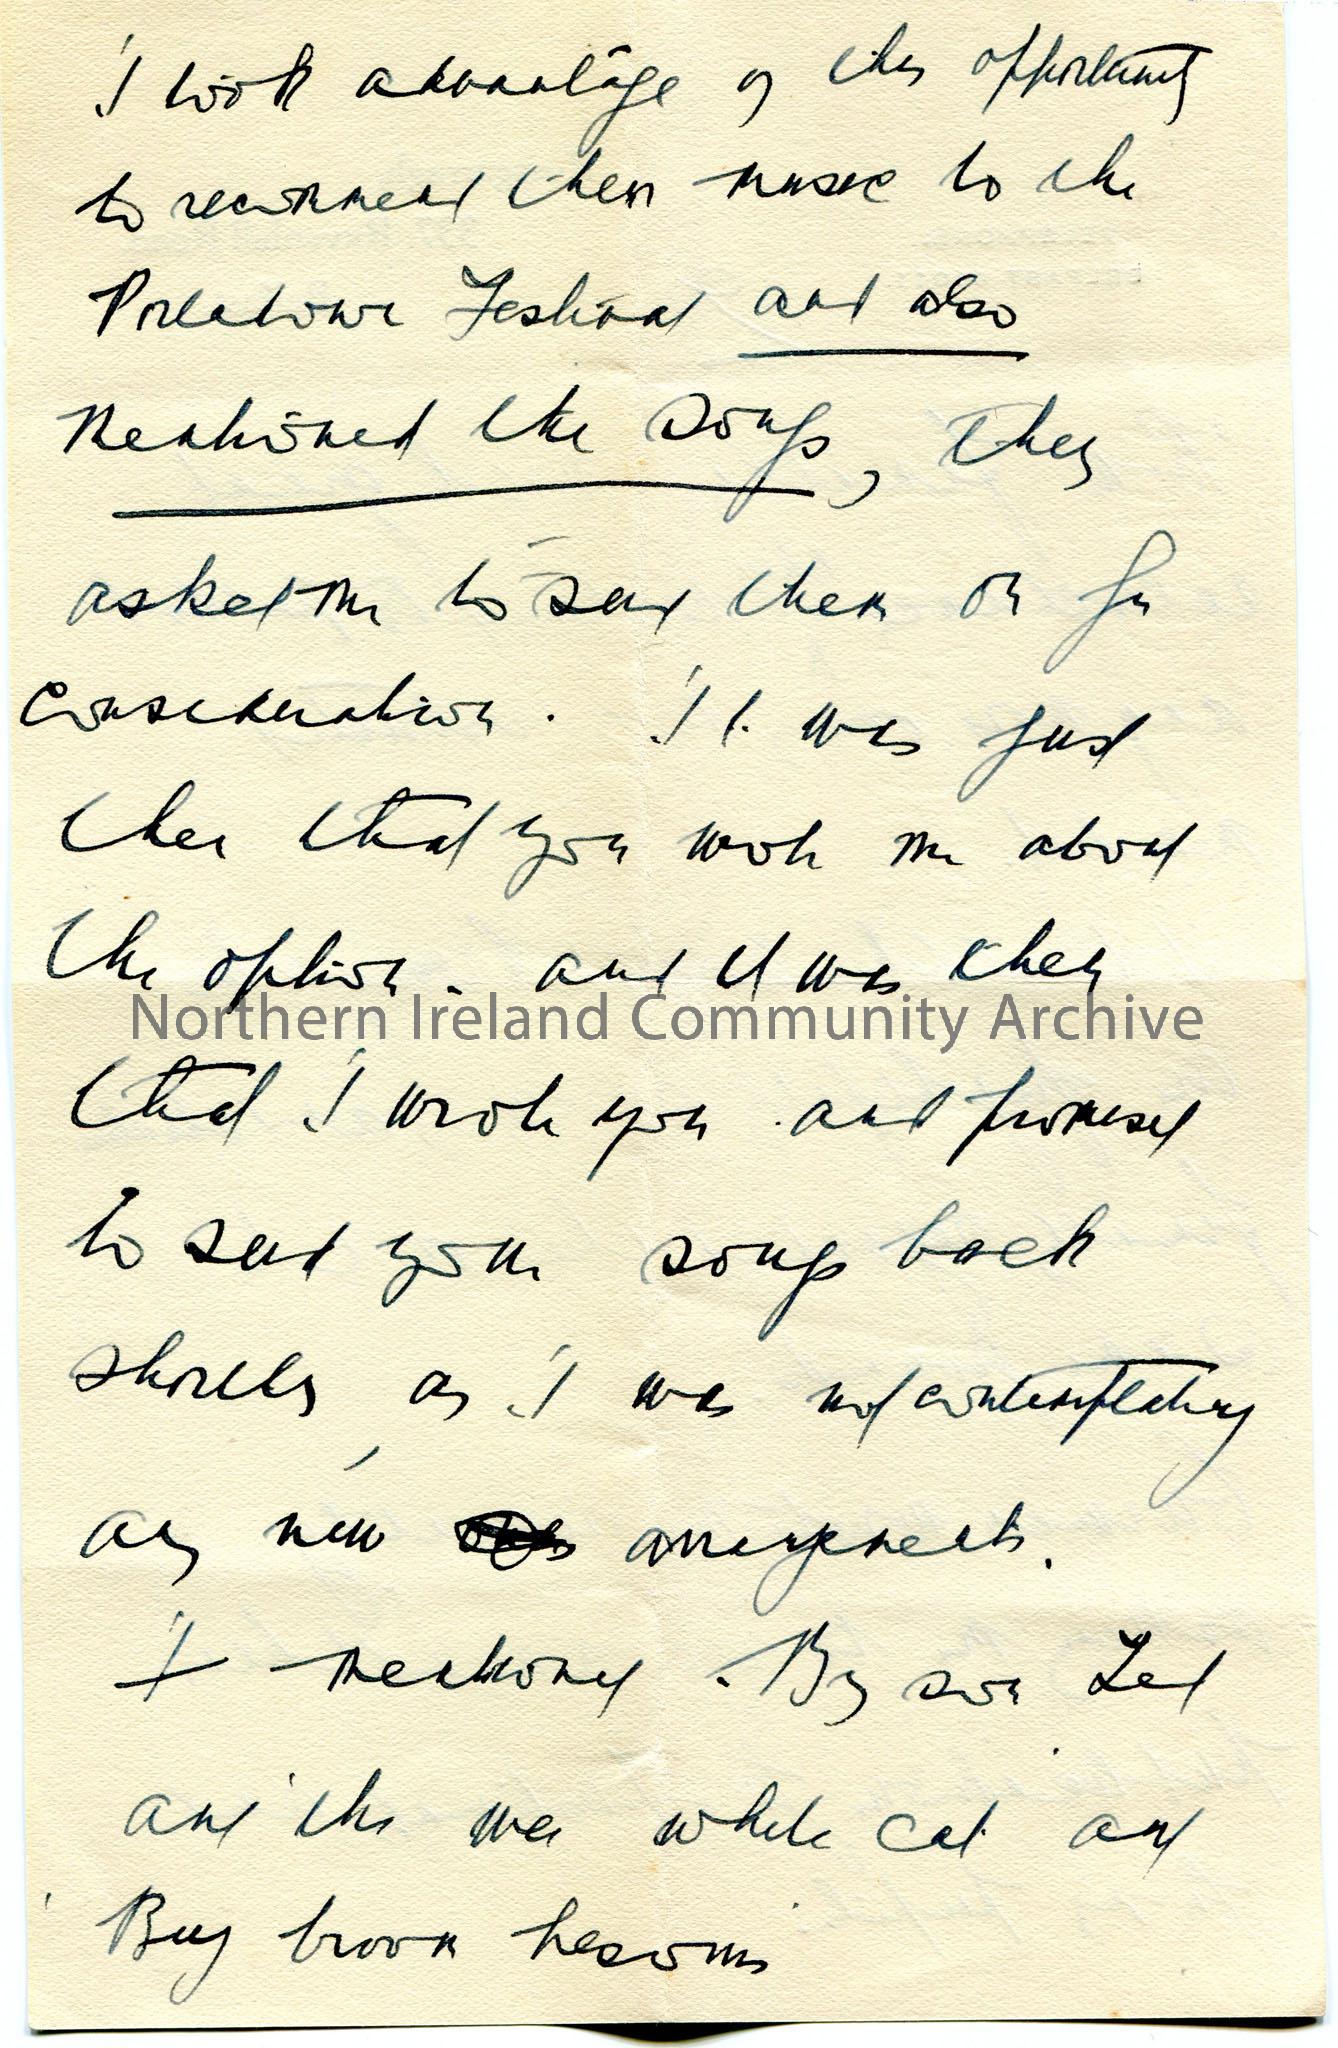 I took advantage of this opportunity
to recommend their music to the
Portadown Festival and also
mentioned the songs, they
asked me to send them on for
consideration. It was just
then that you wrote me about
the option. and it was then
Northern Ireland Community Archive
that I wrote you and promised
to send your songs back
shortly as I was not contemplating
any new arrangements.
I mentioned. My son Ted
and 'the wee white cat and
'Buy broom besoms